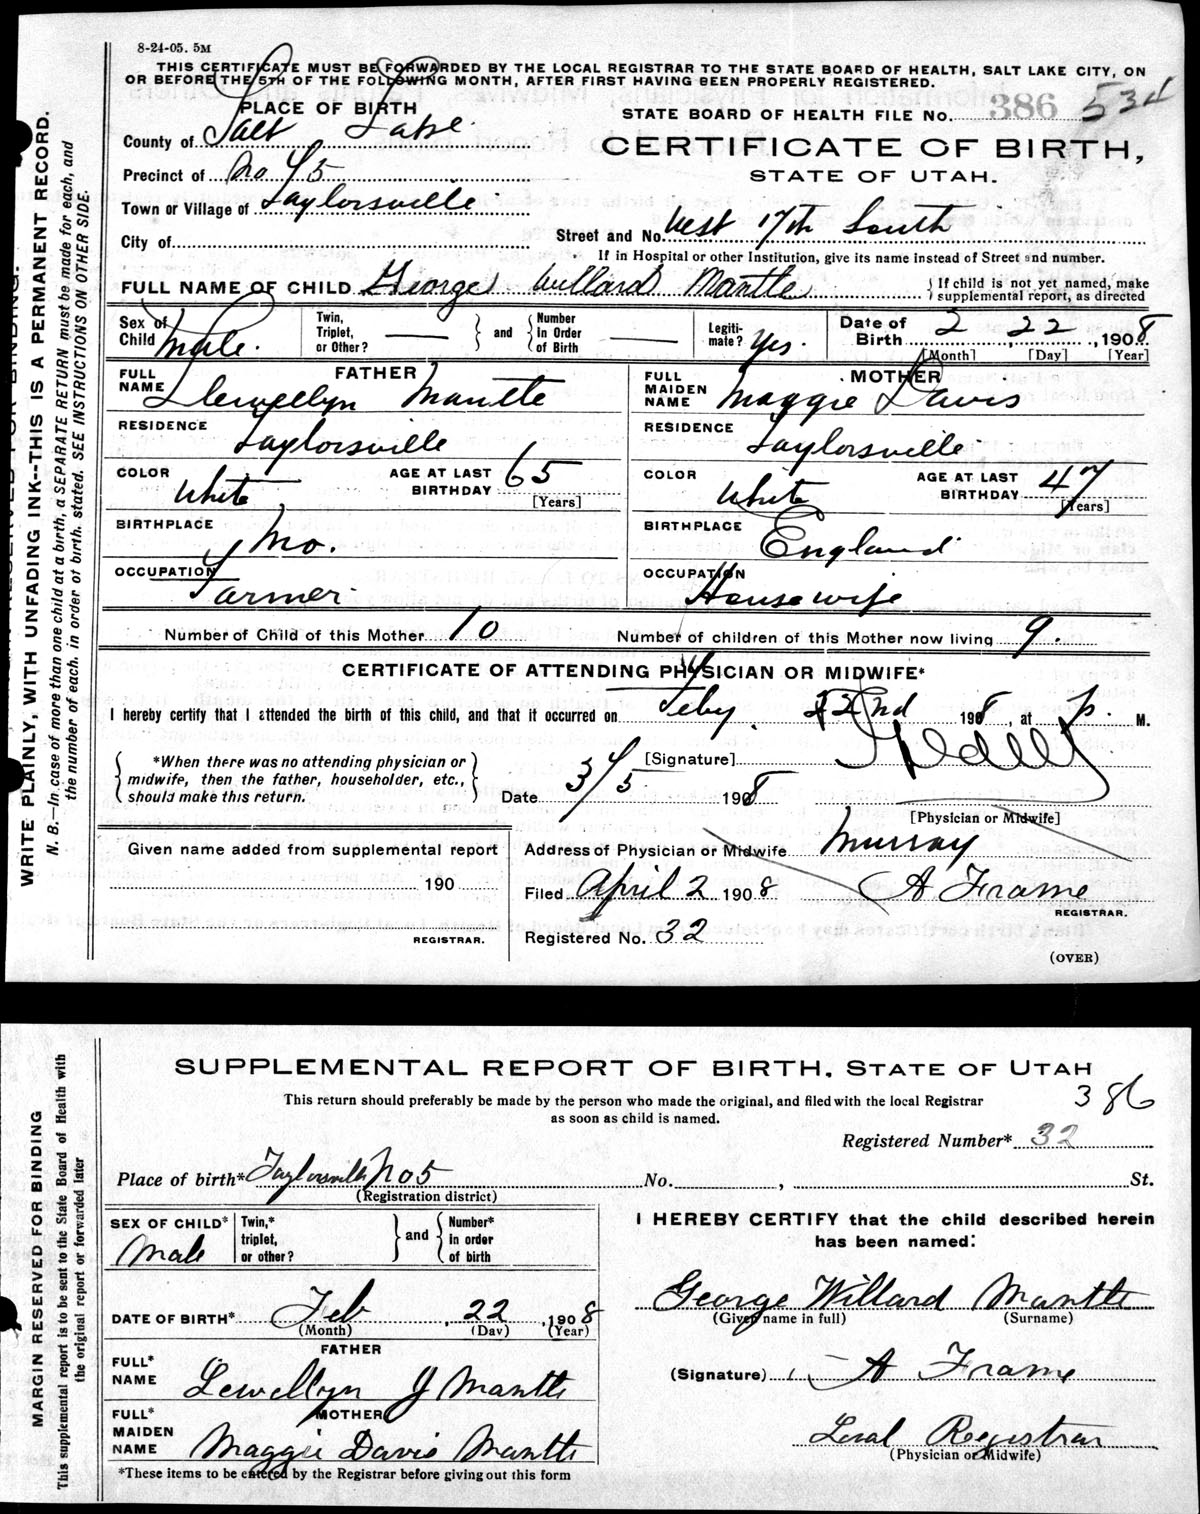 8-24-05. 5M
THIS CERTIFICATE MUST BE FORWARDED BY THE LOCAL REGISTRAR TO THE STATE BOARD OF HEALTH, SALT LAKE CITY, ON
OR BEFORE THE 5TH OF THE FOLLOWING MONTH, AFTER FIRST HAVING BEEN PROPERLY REGISTERED.
PLACE OF BIRTH
STATE BOARD OF HEALTH FILE No. 386 534
County of Salt Lake
CERTIFICATE OF BIRTH,
Precinct of No 45
STATE OF UTAH.
Town or Village of Taylorsville
City of
Street and No. West 17th South
If in Hospital or other Institution, give its name instead of Street and number.
FULL NAME OF CHILD George Willard Mantle { If child is not yet named, make
supplemental report, as directed
Sex of Child Male. Twin, Triplet, or Other? and Number in Order of Birth Legiti-mate? Yes. Date of Birth 2 22, 1908
[Month] [Day] [Year]
FATHER
MOTHER
FULL NAME Llewellyn Mantle
FULL MAIDEN NAME Maggie Davis
RESIDENCE Taylorsville
RESIDENCE Taylorsville
COLOR White AGE AT LAST BIRTHDAY 65 [Years]
COLOR White AGE AT LAST BIRTHDAY 47 [Years]
BIRTHPLACE Mo.
BIRTHPLACE England
OCCUPATION Farmer
OCCUPATION Housewife
Number of Child of this Mother 10 Number of children of this Mother now living 9.
CERTIFICATE OF ATTENDING PHYSICIAN OR MIDWIFE*
I hereby certify that I attended the birth of this child, and that it occurred on Feby. 22nd 1908, at P. M.
*When there was no attending physician or
midwife, then the father, householder, etc.,
should make this return.
[Signature]
Date 3/5 1908
[Physician or Midwife]
Given name added from supplemental report
190
REGISTRAR.
Address of Physician or Midwife Murray
Filed April 2 1908 A Frame
REGISTRAR.
Registered No. 32
(OVER)
WRITE PLAINLY, WITH UNFADING INK--THIS IS A PERMANENT RECORD.
N. B.—In case of more than one child at a birth, a SEPARATE RETURN must be made for each, and
the number of each, in order of birth, stated. SEE INSTRUCTIONS ON OTHER SIDE.
SUPPLEMENTAL REPORT OF BIRTH, STATE OF UTAH
This return should preferably be made by the person who made the original, and filed with the local Registrar
as soon as child is named.
386
Registered Number* 32
Place of birth* Taylorsville No 5 No. , St.
(Registration district)
SEX OF CHILD* Male Twin,* triplet, or other? and Number* in order of birth
I HEREBY CERTIFY that the child described herein
has been named:
DATE OF BIRTH* Feb, 22, 1908
(Month) (Day) (Year)
George Willard Mantle
(Given name in full) (Surname)
FATHER
FULL* NAME Lewellyn J Mantle
(Signature) A Frame
MOTHER
FULL* MAIDEN NAME Maggie Davis Mantle
Local Registrar
(Physician or Midwife)
*These items to be entered by the Registrar before giving out this form
MARGIN RESERVED FOR BINDING
This supplemental report is to be sent to the State Board of Health with
the original report or forwarded later